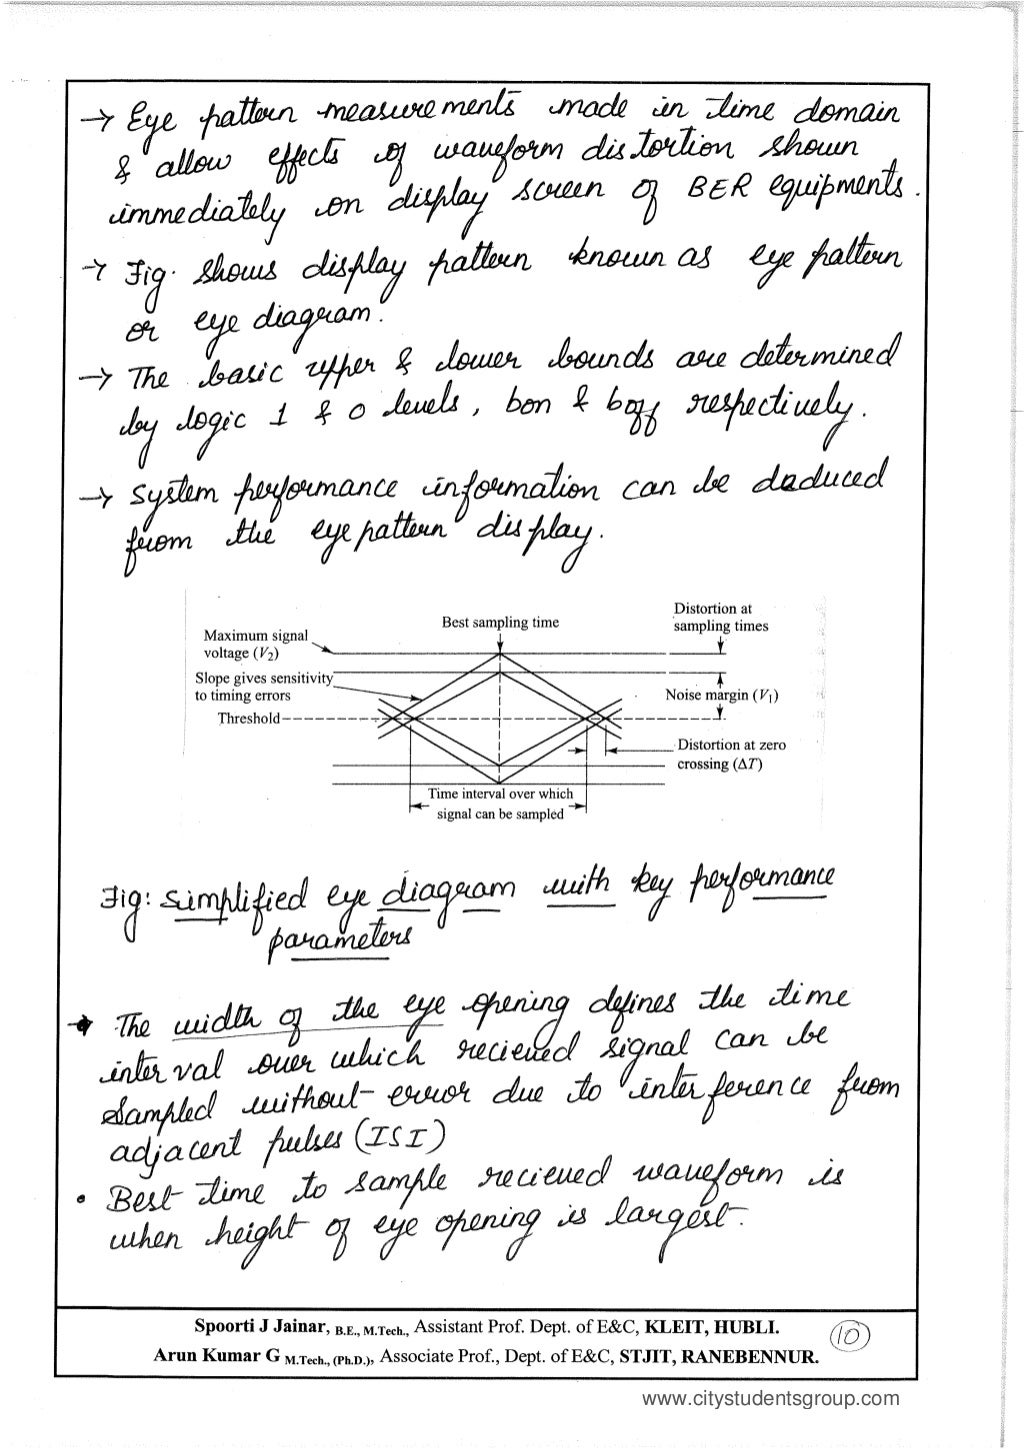 → Eye pattern measurements made in time domain
& allow effects of waveform distortion shown
immediately on display screen of BER equipments.
→ Fig. shows display pattern known as eye pattern
or eye diagram.
→ The basic upper & lower bounds are determined
by logic 1 & 0 levels, bon & boff respectively.
→ System performance information can be deduced
from the eye pattern display.
Maximum signal
voltage (V₂)
Best sampling time
Distortion at
sampling times
Slope gives sensitivity
to timing errors
Noise margin (V₁)
Threshold
Distortion at zero
crossing (ΔT)
Time interval over which
signal can be sampled
Fig: simplified eye diagram with key performance
parameters
→ The width of the eye opening defines the time
interval over which recieved signal can be
sampled without error due to interference from
adjacent pulses (ISI)
• Best time to sample recieved waveform is
when height of eye opening is largest.
Spoorti J Jainar, B.E., M.Tech., Assistant Prof. Dept. of E&C, KLEIT, HUBLI.
Arun Kumar G M.Tech., (Ph.D.), Associate Prof., Dept. of E&C, STJIT, RANEBENNUR.
10
www.citystudentsgroup.com